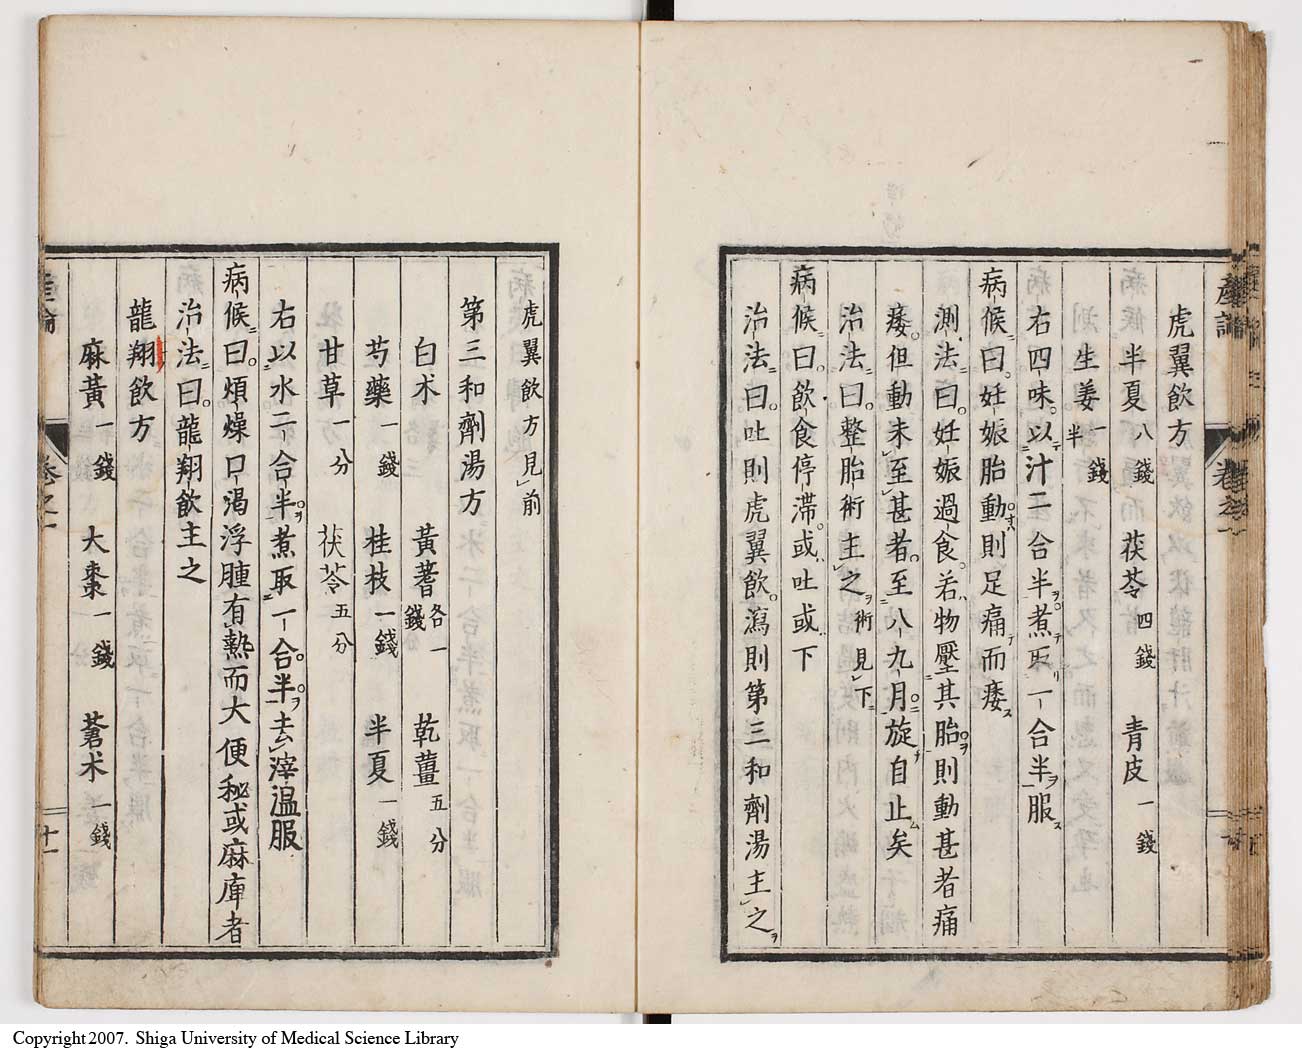 虎翼飲方
半夏八錢 茯苓四錢 青皮一錢
生姜一錢半
右四味以汁二合半煮取一合半服
病候曰妊娠胎動則足痛而痿
測法曰妊娠過食若物壓其胎則動甚者痛
痿但動未至甚者至八九月旋自止矣
治法曰整胎術主之術見下
病候曰飲食停滯或吐或下
治法曰吐則虎翼飲瀉則第三和劑湯主之
產論
卷之一
虎翼飲方見前
第三和劑湯方
白朮 黃蓍各一錢 乾薑五分
芍藥一錢 桂枝一錢 半夏一錢
甘草一分 茯苓五分
右以水二合半煮取一合半去滓温服
病候曰煩燥口渴浮腫有熱而大便秘或麻庳者
治法曰龍翔飲主之
龍翔飲方
麻黃一錢 大棗一錢 蒼朮一錢
卷之一
十一
Copyright 2007. Shiga University of Medical Science Library